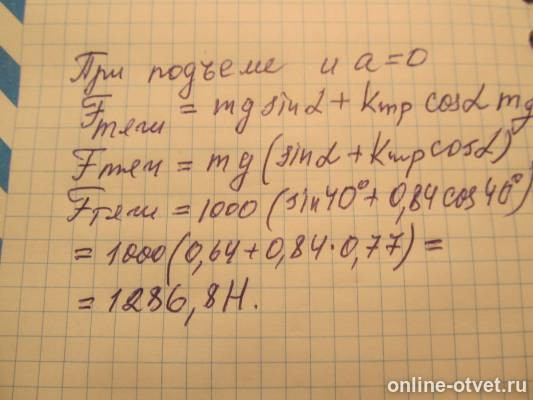 При подъеме и a=0
Fтяги = mg sinα + kтр cosα mg
Fтяги = mg (sinα + kтр cosα)
Fтяги = 1000 (sin40° + 0,84 cos40°)
= 1000(0,64+0,84·0,77) =
= 1286,8 Н.
online-otvet.ru